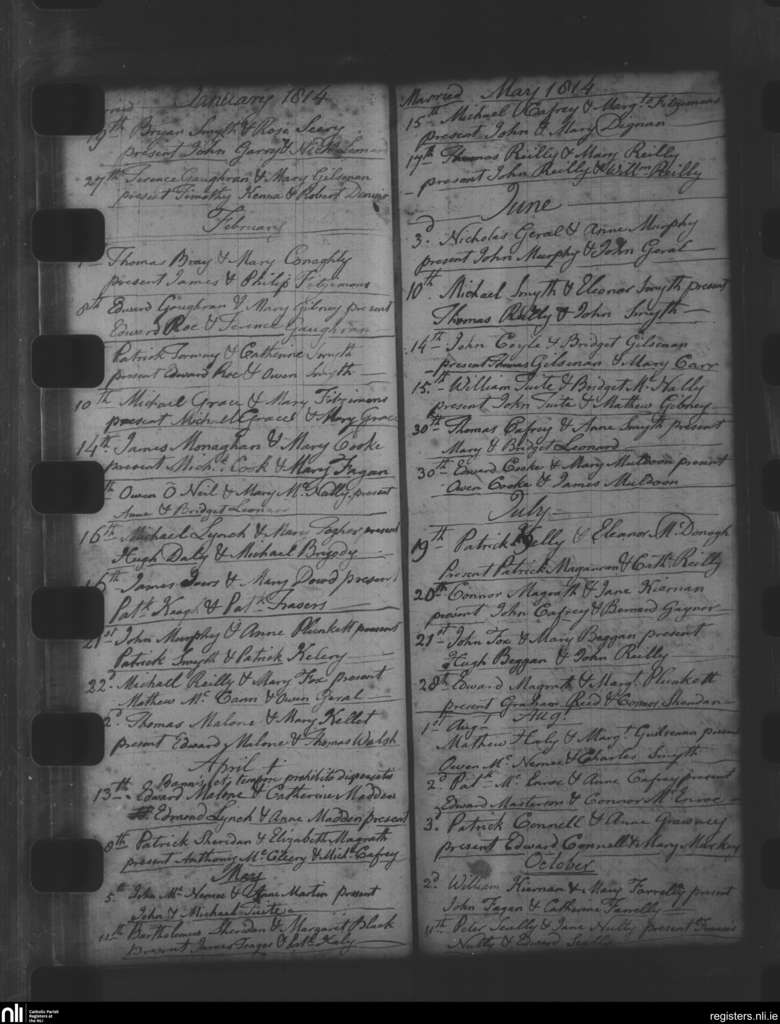 January 1814
19th Bryan Smyth & Rose Seery
present John Garry &
27th Terence Gaughran & Mary Gilsenan
present Timothy Kenna & Robert
February
Thomas Bray & Mary Conaghty
present James & Philip Fitzsimons
8th Edward Gaughran & Mary Gibney present
Edward Roe & Terence Gaughran
Patrick & Catherine Smyth
present Edward Roe & Owen Smyth
10th Michael Grace & Mary Fitzimons
present Michael Grace & Mary Grace
14th James Monaghan & Mary Cooke
present Michl. Cook & Mary Fagan
th Owen O Neil & Mary Mc Nally present
Anne & Bridget Leonard
16th Michael Lynch & Mary present
Hugh Daly & Michael Brigody
16th James & Mary Dowd present
Patk. Keogh & Patk. Frasers
21st John Murphy & Anne Plunkett present
Patrick Smyth & Patrick
22d. Michall Reilly & Mary Fox present
Mathew Mc. Cann & Owen Geral
2d. Thomas Malone & Mary Kellet
present Edward Malone & Thomas Walsh
April
Bannis et tempore prohibito dispensatis
13th Edward Malone & Catherine Madden
Edmond Lynch & Anne Madden present
8th Patrick Sheridan & Elizabeth Magrath
present Anthony Mc. Cleery & Michl. Cafrey
May
5th John Mc. Namee & Anne Martin present
John & Michael Tuite
11th Bartholomew Sheridan & Margaret Plack
present James & Cath. Haly
Married May 1814
15th Michael Cafrey & Margt. Fitzsimons
present John & Mary Dignan
17th Thomas Reilly & Mary Reilly
present John Reilly & Willm Reilly
June
3d. Nicholas Geral & Anne Murphy
present John Murphy & John Geral
10th. Michael Smyth & Eleonor Smyth present
Thomas Reilly & John Smyth
14th John Coyle & Bridget Gilsenan
present Thomas Gilsenan & Mary Carr
15th William Tuite & Bridget Mc. Nally
present John Tuite & Mathew Gibney
30th Thomas Cafrey & Anne Smyth present
Mary & Bridget Leonard
30th Edward Cooke & Mary Muldoon present
Owen Cooke & James Muldoon
July
19th Patrick Kelly & Eleanor Mc. Donogh
Present Patrick & Cath. Reilly
20th Connor Magrath & Jane Kiernan
present John Cafrey & Bernard Gaynor
21st John Fox & Mary Beggan present
Hugh Beggan & John Reilly
28th Edward Magrath & Margt. Plunkett
present Graham Reed & Connor Sheridan
1st Augt. Augt.
Mathew Haly & Margt. present
Owen Mc. Namee & Charles Smyth
2d. Patk. Mc. Enroe & Anne Cafrey present
Edward Masterson & Connor Mc. Enroe
3d. Patrick Connell & Anne
present Edward Connell & Mary
October
2d. William Kiernan & Mary Farrelly present
John Fagan & Catherine Farrelly
11th Peter Scally & Jane Nulty present Francis
Nulty & Edward Scally
nli
Catholic Parish
Registers at
the NLI
registers.nli.ie